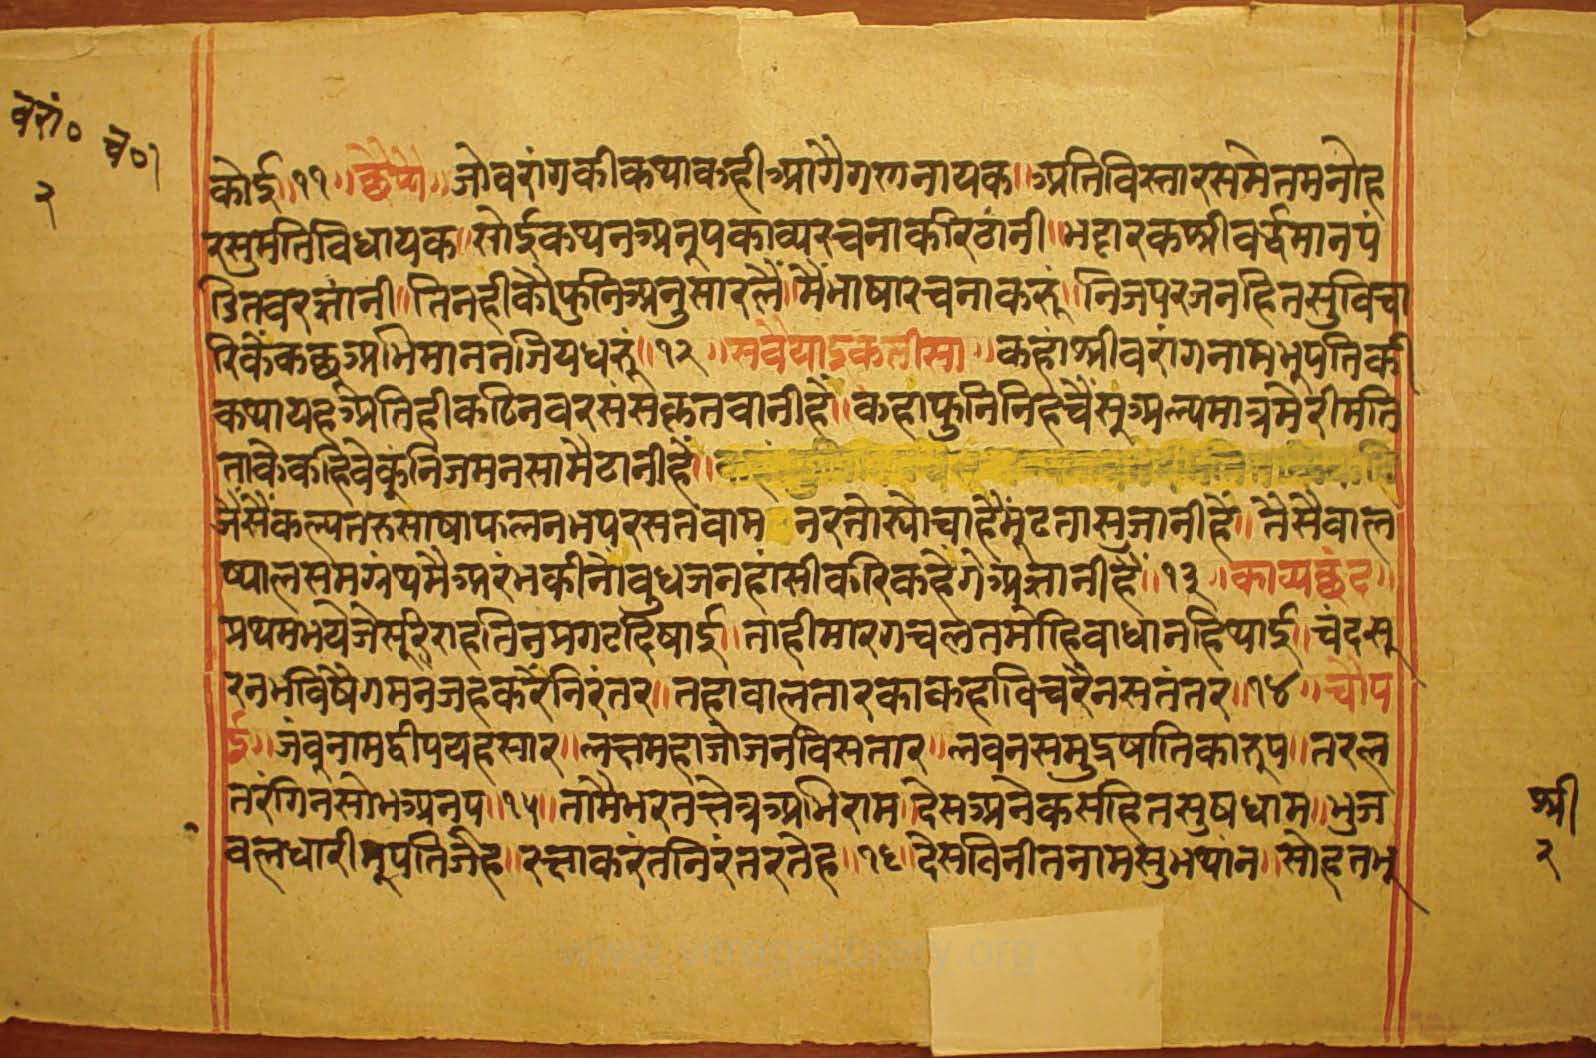 वरां० च०१
२
कोई॥११॥छप्पै॥जोवरांगकीकथाकहीआगैगणनायक॥अतिविस्तारसमेतमनोह
रसुमतिविधायक॥सोईकथनअनुपकाव्यरचनाकरिठांनी॥भट्टारकश्रीवर्द्धमानपं
डितवरज्ञांनी॥तिनहीकौफुनिअनुसारलै॥मैंभाषारचनाकरूं॥निजपरजनहितसुविचा
रिकैंकछुअभिमाननजियधरूं॥१२॥सवैयाइकतीसा॥कहांश्रीवरांगनामभुपतिकी
कथायहअतिहीकठिनवरसंसकृतवानीहैं॥कहांफुनिनिहचैंसुअल्पमात्रमेरीमति
ताकेकहिवेकुंनिजमनसामैठानीहैं॥
जैंसैंकल्पतरुसाषाफलनभपरसतवाम नरतोस्योचाहैमुंढतासुजानीहैं॥तैसैवाल
ष्यालसमग्रंथमैअरंभकीनौवुधजनहांसीकरिकहैगेअज्ञानीहैं॥१३॥काव्यछंद॥
प्रथमभयेजेसुरिराहतिनप्रगटदिषाई॥ताहीमारगचलतमोहिवाधानहिथाई॥चंदसु
रनभविषैगमनजहकरैनिरंतर॥तहावालतारकाकहाविचरैनसतंतर॥१४॥चौप
ई॥जंवुनामद्वीपयहसार॥लक्षमहाजोजनविसतार॥लवनसमुद्रषातिकारुप॥तरल
तरंगिनसोभअनप॥१५॥तामैभरतक्षेत्रअभिराम॥देसअनेकसहितसुषधाम॥भुज
वलधारीभूपतिजेह॥रक्षाकरंतनिरंतरतेह॥१६॥देसविनीतनामसुभथांन॥सोहतभु
श्री
२
www.vitragelibrary.org